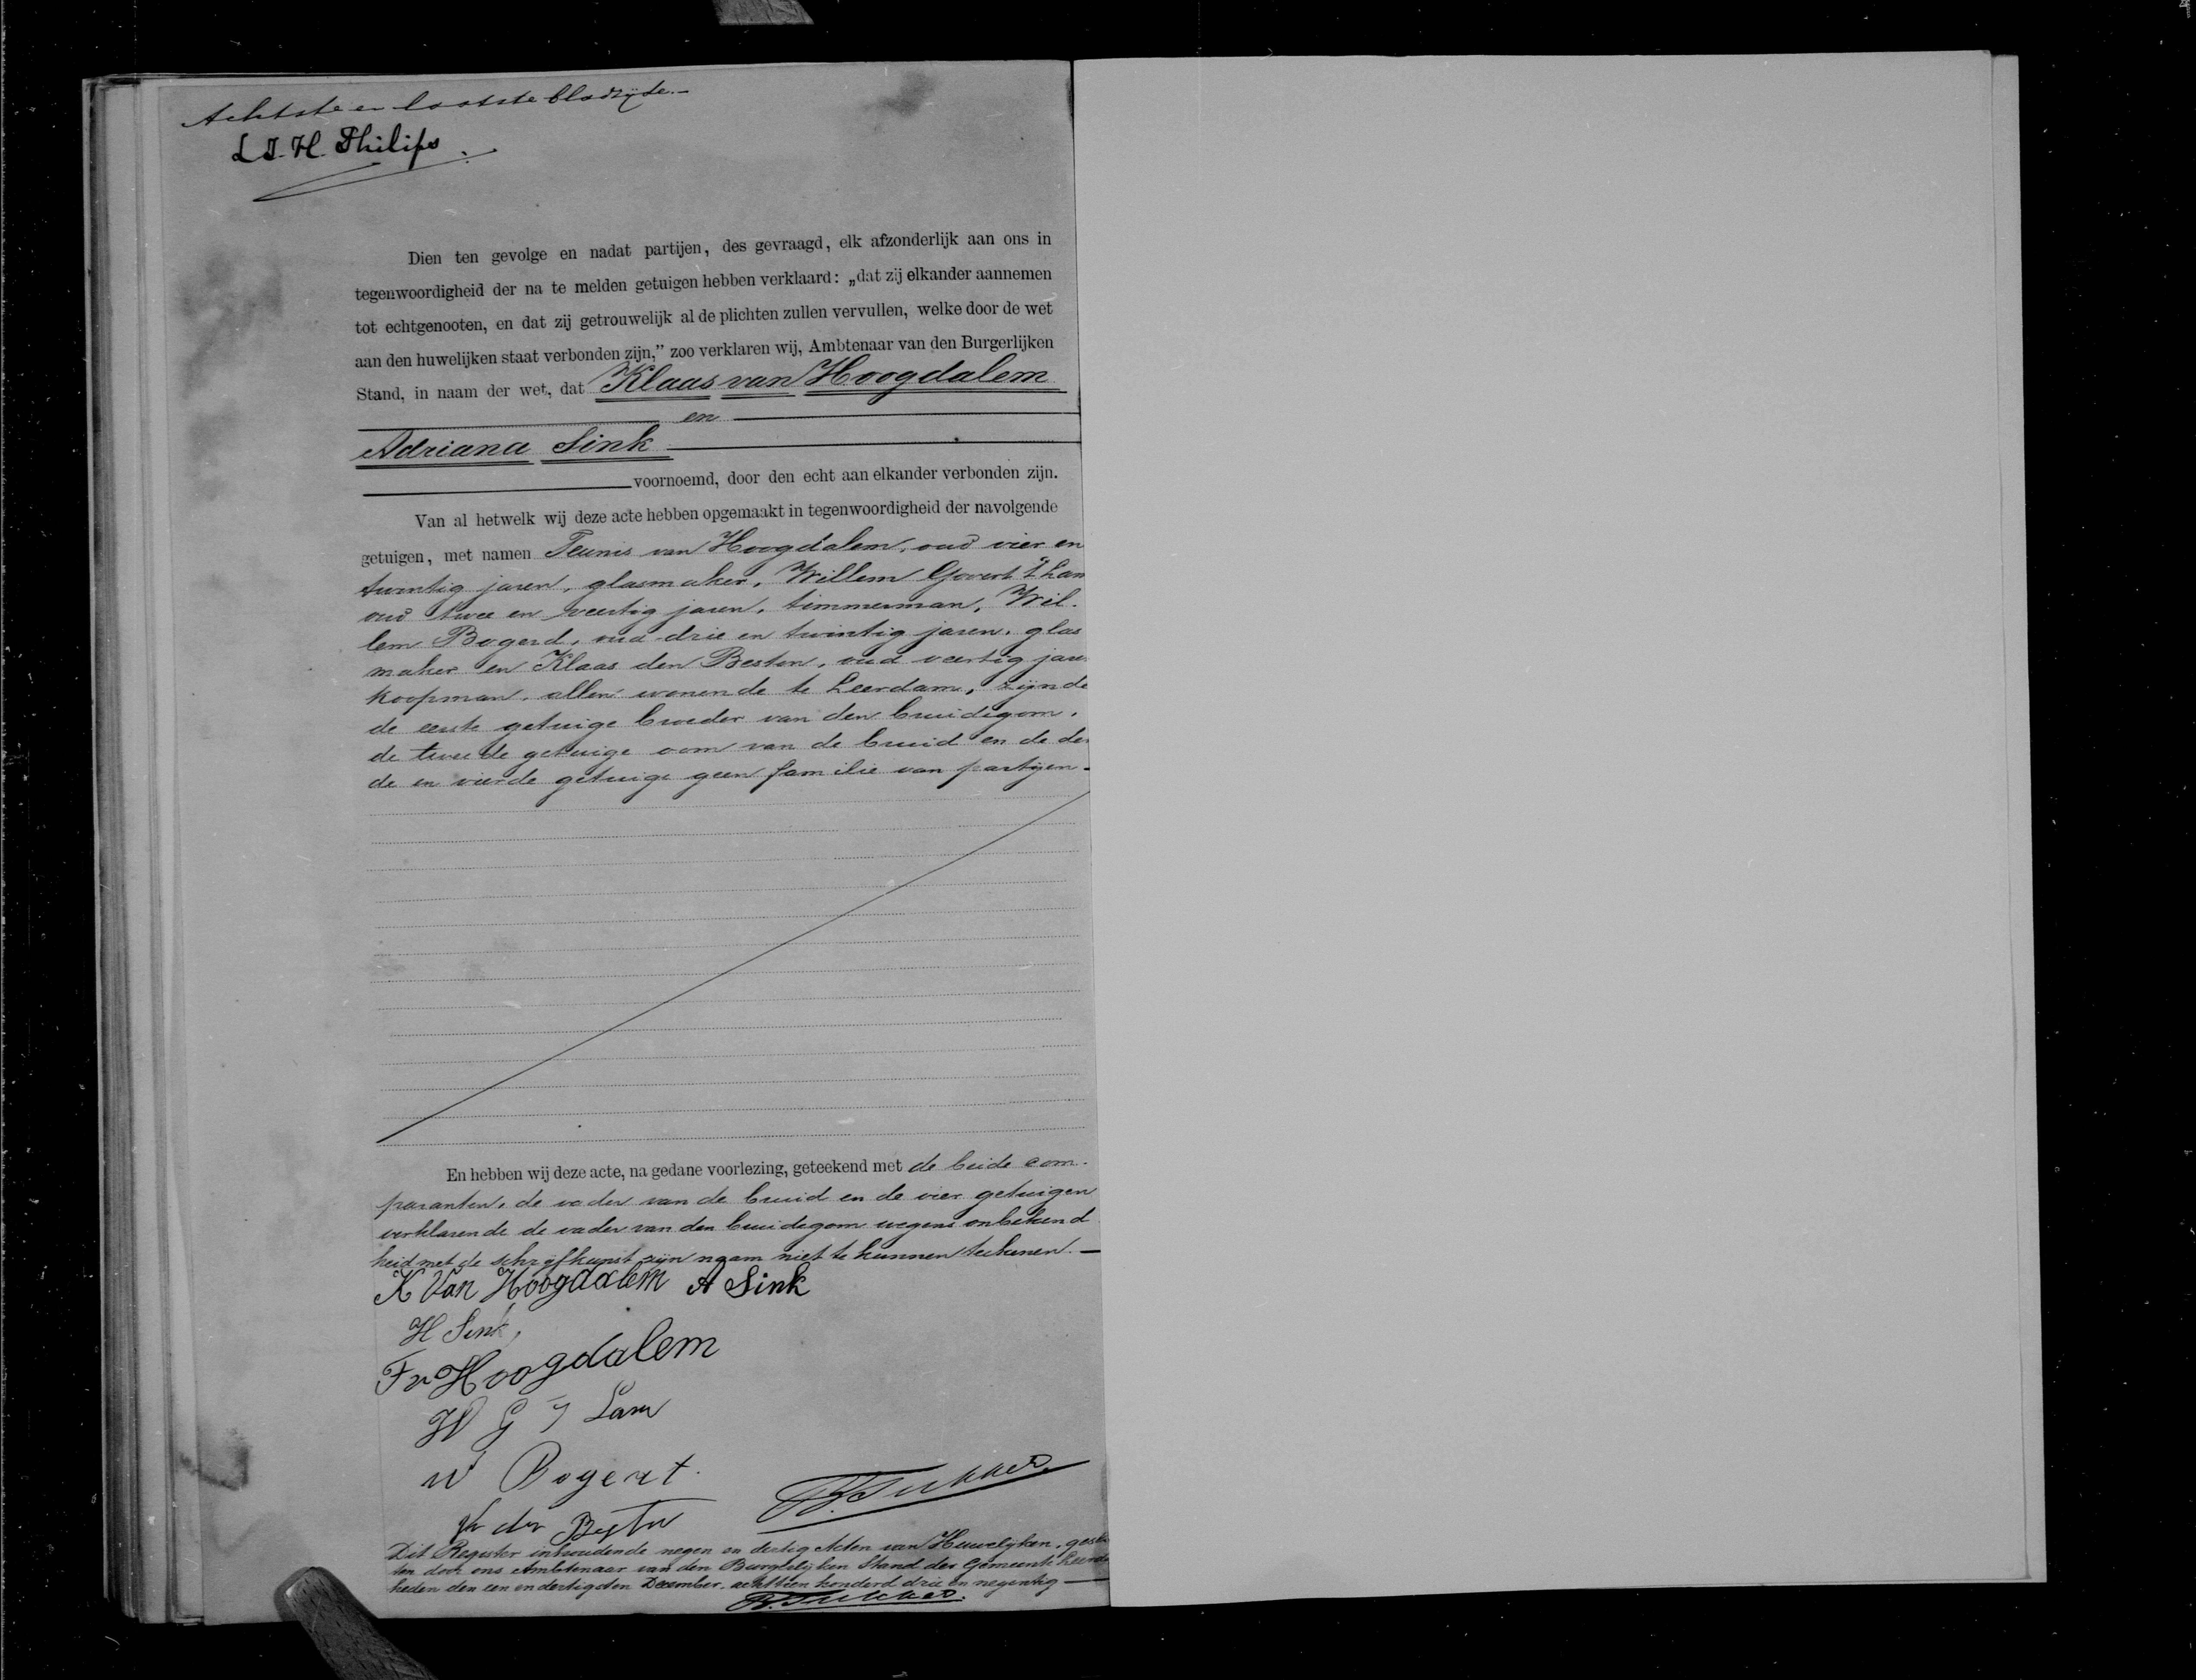 Achtste en laatste bladzijde.
L J. H. Philips
Dien ten gevolge en nadat partijen, des gevraagd, elk afzonderlijk aan ons in
tegenwoordigheid der na te melden getuigen hebben verklaard: „dat zij elkander aannemen
tot echtgenooten, en dat zij getrouwelijk al de plichten zullen vervullen, welke door de wet
aan den huwelijken staat verbonden zijn,” zoo verklaren wij, Ambtenaar van den Burgerlijken
Stand, in naam der wet, dat Klaas van Hoogdalem
en
Adriana Sink
voornoemd, door den echt aan elkander verbonden zijn.
Van al hetwelk wij deze acte hebben opgemaakt in tegenwoordigheid der navolgende
getuigen, met namen Teunis van Hoogdalem, oud vier en
twintig jaren, glasmaker, Willem Govert 't Lam
oud twee en veertig jaren, timmerman, Wil-
lem Bogerd, oud drie en twintig jaren, glas
maker en Klaas den Besten, oud veertig jar
koopman, allen wonende te Leerdam, zijnde
de eerste getuige broeder van den bruidegom,
de tweede getuige oom van de bruid en de der
de en vierde getuige geen familie van partijen.
En hebben wij deze acte, na gedane voorlezing, geteekend met de beide com-
paranten, de vader van de bruid en de vier getuigen
verklarende de vader van den bruidegom wegens onbekend
heid met de schrijfkunst zijn naam niet te kunnen teekenen.
K Van Hoogdalem A Sink
H Sink
T v Hoogdalem
W G T Lam
W Bogert.
K den Besten
Dit Register inhoudende negen en dertig Akten van Huwelijken, geslo
ten door ons Ambtenaar van den Burgerlijken Stand der Gemeente Leerda
heden den een en dertigsten December achttien honderd drie en negentig